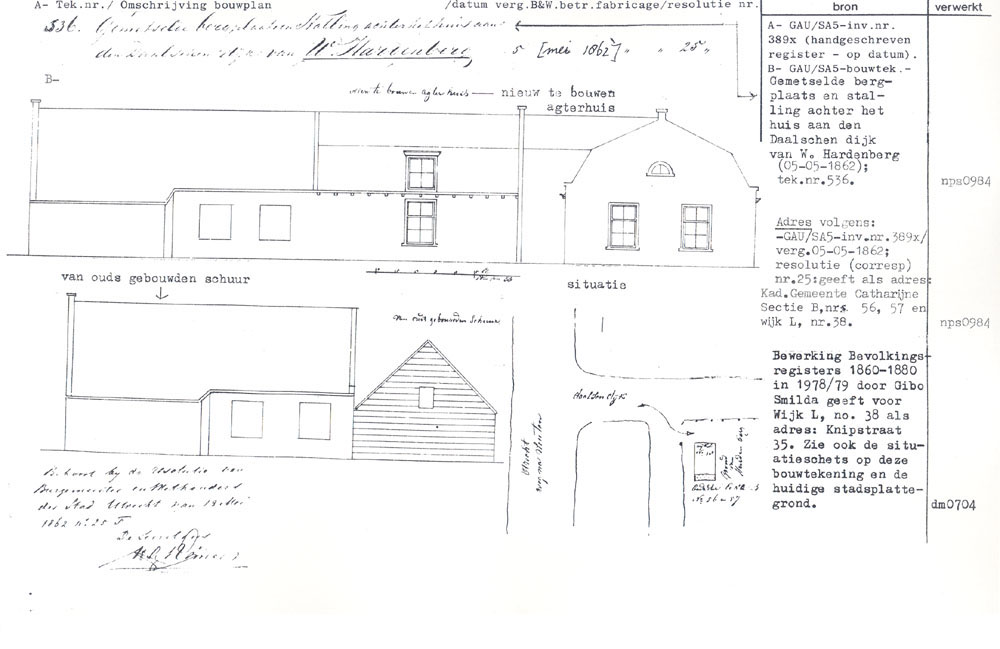 A- Tek.nr./ Omschrijving bouwplan /datum verg.B&W.betr.fabricage/resolutie nr. bron verwerkt
536. Gemetselde bergplaats en Stalling achter het huis aan
den Daalschen dijk van W. Hardenberg, 5 [mei 1862] " " 25 "
B-
nieuw te bouwen agterhuis
nieuw te bouwen
agterhuis
A- GAU/SA5-inv.nr.
389x (handgeschreven
register - op datum).
B- GAU/SA5-bouwtek.-
Gemetselde berg-
plaats en stal-
ling achter het
huis aan den
Daalschen dijk
van W. Hardenberg
(05-05-1862);
tek.nr.536.
nps0984
Adres volgens:
-GAU/SA5-inv.nr.389x/
verg.05-05-1862;
resolutie (corresp)
nr.25:geeft als adres:
Kad.Gemeente Catharijne
Sectie B,nrs. 56, 57 en
wijk L, nr.38.
nps0984
Bewerking Bevolkings-
registers 1860-1880
in 1978/79 door Gibo
Smilda geeft voor
Wijk L, no. 38 als
adres: Knipstraat
35. Zie ook de situ-
atieschets op deze
bouwtekening en de
huidige stadsplatte-
grond.
dm0704
van ouds gebouwden schuur
van ouds gebouwden Schuur
situatie
Daalsen Dijk
Utrecht
No 56 en 57
Behoort bij de resolutie van
Burgemeester en Wethouders
der Stad Utrecht van
1862 No 25
De Secretaris